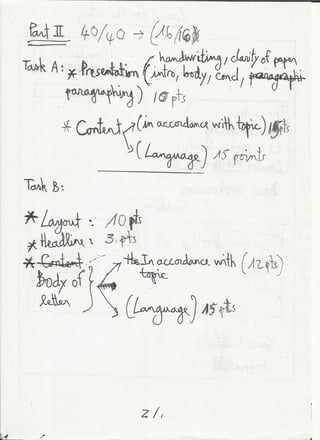 Part II 40/40 → (16/16)
Task A : * Presentation ( handwriting, clarity of paper
intro, body, concl, paragraphi
paragraphing) 10 pts
* Content → (in accordance with topic) 15pts
→ (Language) 15 points
Task B :
* Layout : 10 pts
* Headline : 3 pts
* Content : → He In accordance with (12 pts)
topic
Body of
letter → (Language) 15 pts
2/,